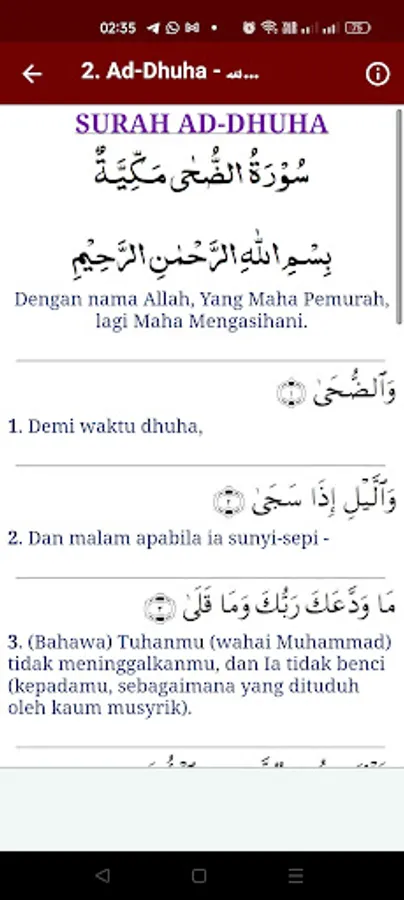 02:35
75
2. Ad-Dhuha - سـ...
SURAH AD-DHUHA
سُوْرَةُ الضُّحٰى مَكِّيَّةٌ
بِسْمِ اللّٰهِ الرَّحْمٰنِ الرَّحِيْمِ
Dengan nama Allah, Yang Maha Pemurah,
lagi Maha Mengasihani.
وَٱلضُّحَىٰ ۝١
1. Demi waktu dhuha,
وَٱلَّيْلِ إِذَا سَجَىٰ ۝٢
2. Dan malam apabila ia sunyi-sepi -
مَا وَدَّعَكَ رَبُّكَ وَمَا قَلَىٰ ۝٣
3. (Bahawa) Tuhanmu (wahai Muhammad)
tidak meninggalkanmu, dan Ia tidak benci
(kepadamu, sebagaimana yang dituduh
oleh kaum musyrik).